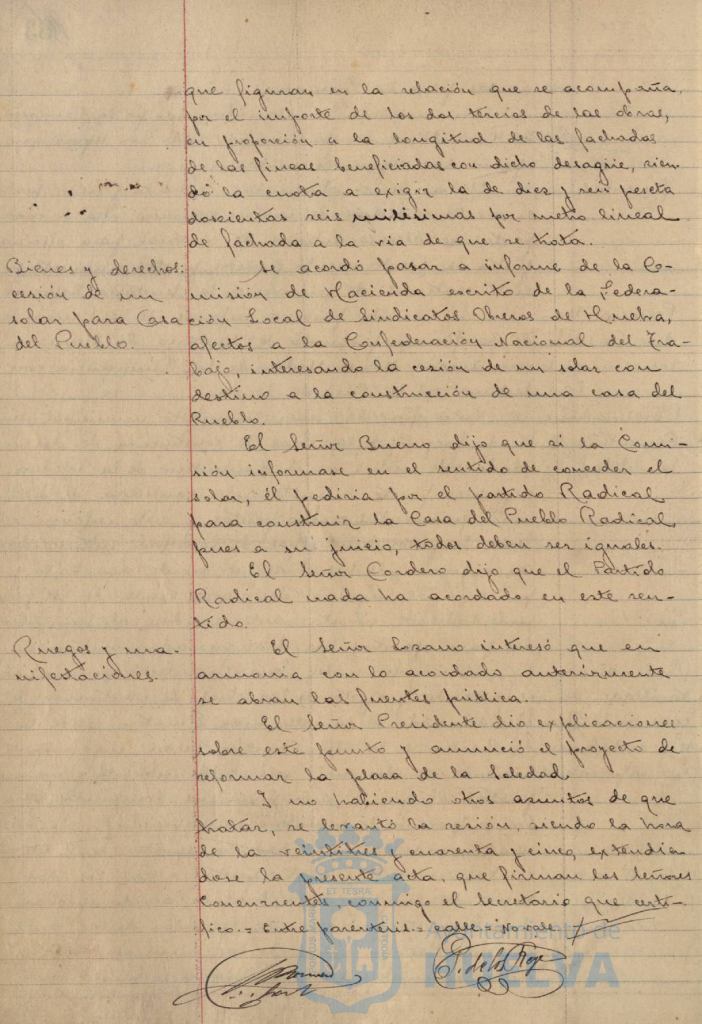 que figuran en la relación que se acompaña,
por el importe de los dos tercios de las obras,
en proporción a la longitud de las fachadas
de las fincas beneficiadas con dicho desagüe, sien-
do la cuota a exigir la de diez y seis peseta
doscientas seis milésimas por metro lineal
de fachada a la via de que se trata.
Bienes y derechos:
cesión de un
solar para Casa
del Pueblo.
Se acordó pasar a informe de la Co-
misión de Hacienda escrito de la Federa-
ción Local de Sindicatos Obreros de Huelva,
afectos a la Confederación Nacional del Tra-
bajo, interesando la cesión de un solar con
destino a la construcción de una casa del
Pueblo.
El Señor Bueno dijo que si la Comi-
sión informase en el sentido de conceder el
solar, él pediria por el partido Radical
para construir la Casa del Pueblo Radical,
pues a su juicio, todos deben ser iguales.
El Señor Cordero dijo que el Partido
Radical nada ha acordado en este sen-
tido.
Ruegos y ma-
nifestaciones.
El Señor Lozano interesó que en
armonia con lo acordado anteriormente
se abran las fuentes pública.
El Señor Presidente dio explicaciones
sobre este punto y anunció el proyecto de
reformar la plaza de la Soledad.
Y no habiendo otros asuntos de que
tratar, se levantó la sesión, siendo la hora
de la veintitres y cuarenta y cinco, extendién
dose la presente acta, que firman los Señores
Concurrentes, conmigo el Secretario que certi-
fico.= Entre parentesis.= calle = No vale.
P. de los Reye
Ayuntamiento de
HUELVA